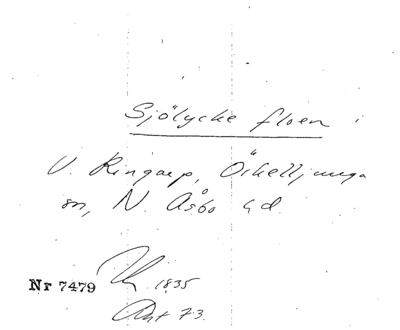 Sjölycke floen i
V. Ringarp, Örkelljunga
sn, N. Åsbo hd.
Nr 7479
1835
Akt 73.